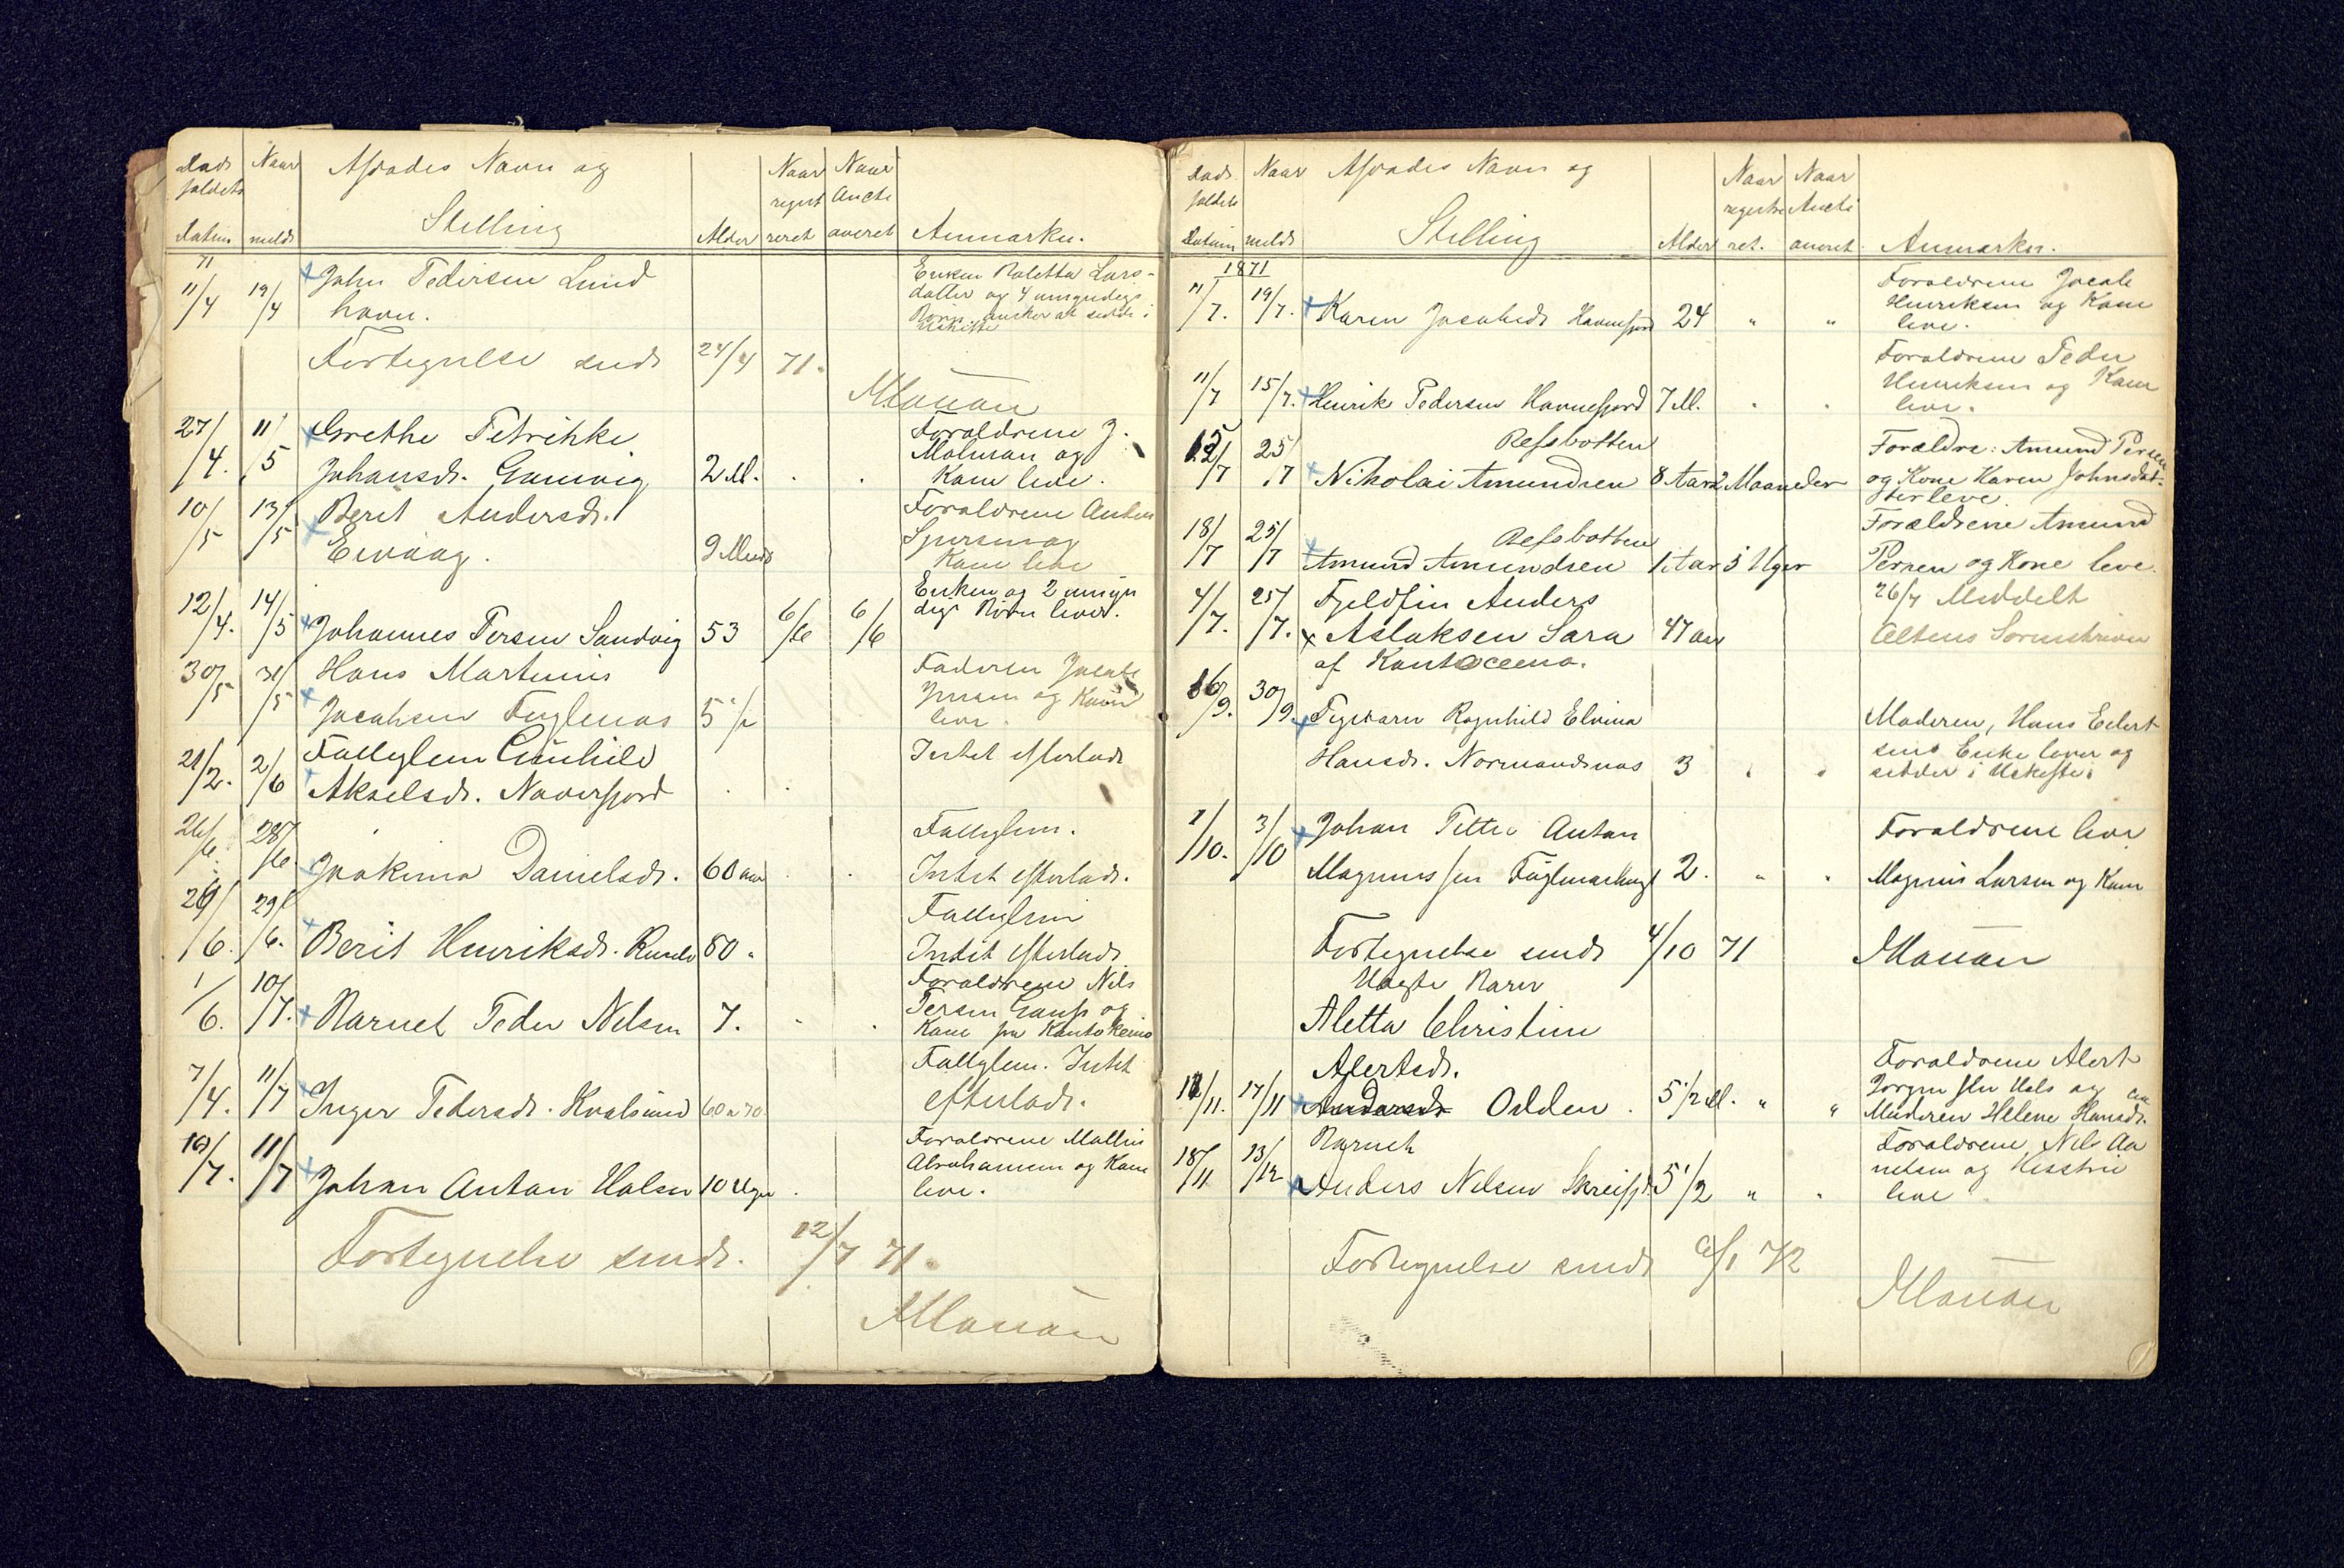 Døds
faldets
Datum
Naar
meldt
Afdødes Navn og
Stilling
Alder
Naar
regist
reret
Naar
Aucti
oneret
Anmærkn.
71
11/4 19/4 John Pedersen Lund
havn.
Enken Lars-
datter og 4 umyndige
Børn ønsker at sidde i
Uskifte
Fortegnelse sendt 24/4 71.
27/4. 11/5 Grethe Petrikke
Johansdr. Gamvig 2 M. . .
Forældrene J.
Molman og
Kone leve.
10/5 13/5 Berit Andersdr.
Eivaag. 9 Mnd
Forældrene Anders
og
Kone leve
12/4. 14/5 Johannes Persen Sandvig 53 6/6 6/6
Enken og 2 umyn
dige Børn lever.
30/5 31/5 Hans Martinus
Jacobsen Fuglenæs 5 1/2
Faderen Jacob
Jensen og Kone
leve.
21/2. 2/6 Fattiglem Gunhild
Akselsdr. Naverfjord . .
Intet efterladt
26/6. 28/6. Joakima Danielsdr. 60 aar . .
Fattiglem.
Intet efterladt.
26/6. 29/6. Berit Henriksdr. 80 "
Fattiglem
Intet efterladt
1/6. 10/7. Barnet Peder Nilsen 7. . .
Forældrene Nils
Persen Gaup og
Kone fra Kautokeino
7/4. 11/7 Inger Pedersdr. Kvalsund 60 a 70
Fattiglem. Intet
efterladt.
10/7. 11/7 Johan Anton Halsen 10 Uger .
Forældrene Mathis
Abrahamsen og Kone
leve.
Fortegnelse sendt. 12/7 71.
Døds
faldets
Datum
Naar
meldt
Afdødes Navn og
Stilling
Alder
Naar
registre
ret.
Naar
Aucti
oneret
Anmærkn.
1871
11/7. 19/7. Karen Jacobsdr Havnefjord 24 " "
Forældrene Jacob
Henriksen og Kone
leve.
11/7 15/7. Henrik Pedersen Havnefjord 7 M. . .
Forældrene Peder
Henriksen og Kone
leve.
Refsbotten
12/7 25/7 Nikolai Amundsen 8 Aar 2 Maaneder
Forældre: Amund Persen
og Kone Karen Johnsdat-
ter leve
Refsbotten
18/7 25/7 Amund Amundsen 1 Aar 3 Uger
Forældrene Amund
Persen og Kone leve.
4/7. 25/7. Fjeldfin Anders
Aslaksen Sara 47 aar
af Kautoceino.
26/7 Meddelt
Altens Sorenskriver
26/9. 30/9. Pigebarn Ragnhild Elvina
Hansdr. Normandsnæs 3 . .
Moderen, Hans Eilert
sens Enke lever og
sidder i Uskifte.
1/10. 3/10 Johan Petter Anton
Magnussen 2. " "
Forældrene leve
Magnus Larsen og Kone
Fortegnelse sendt 4/10 71
Uægte Barn
Aletta Christine
Alertsdr.
12/11. 17/11 Andersdr Odden. 5 1/2 M. " "
Forældrene Alert
Jørgensen Hals og
Moderen Helene Hansdr. leve
18/11 13/12 Barnet
Anders Nilsen Skreifjd. 5 1/2 " "
Forældrene Nils An
nelsen og Hustru
leve
Fortegnelse sendt 2/1 72